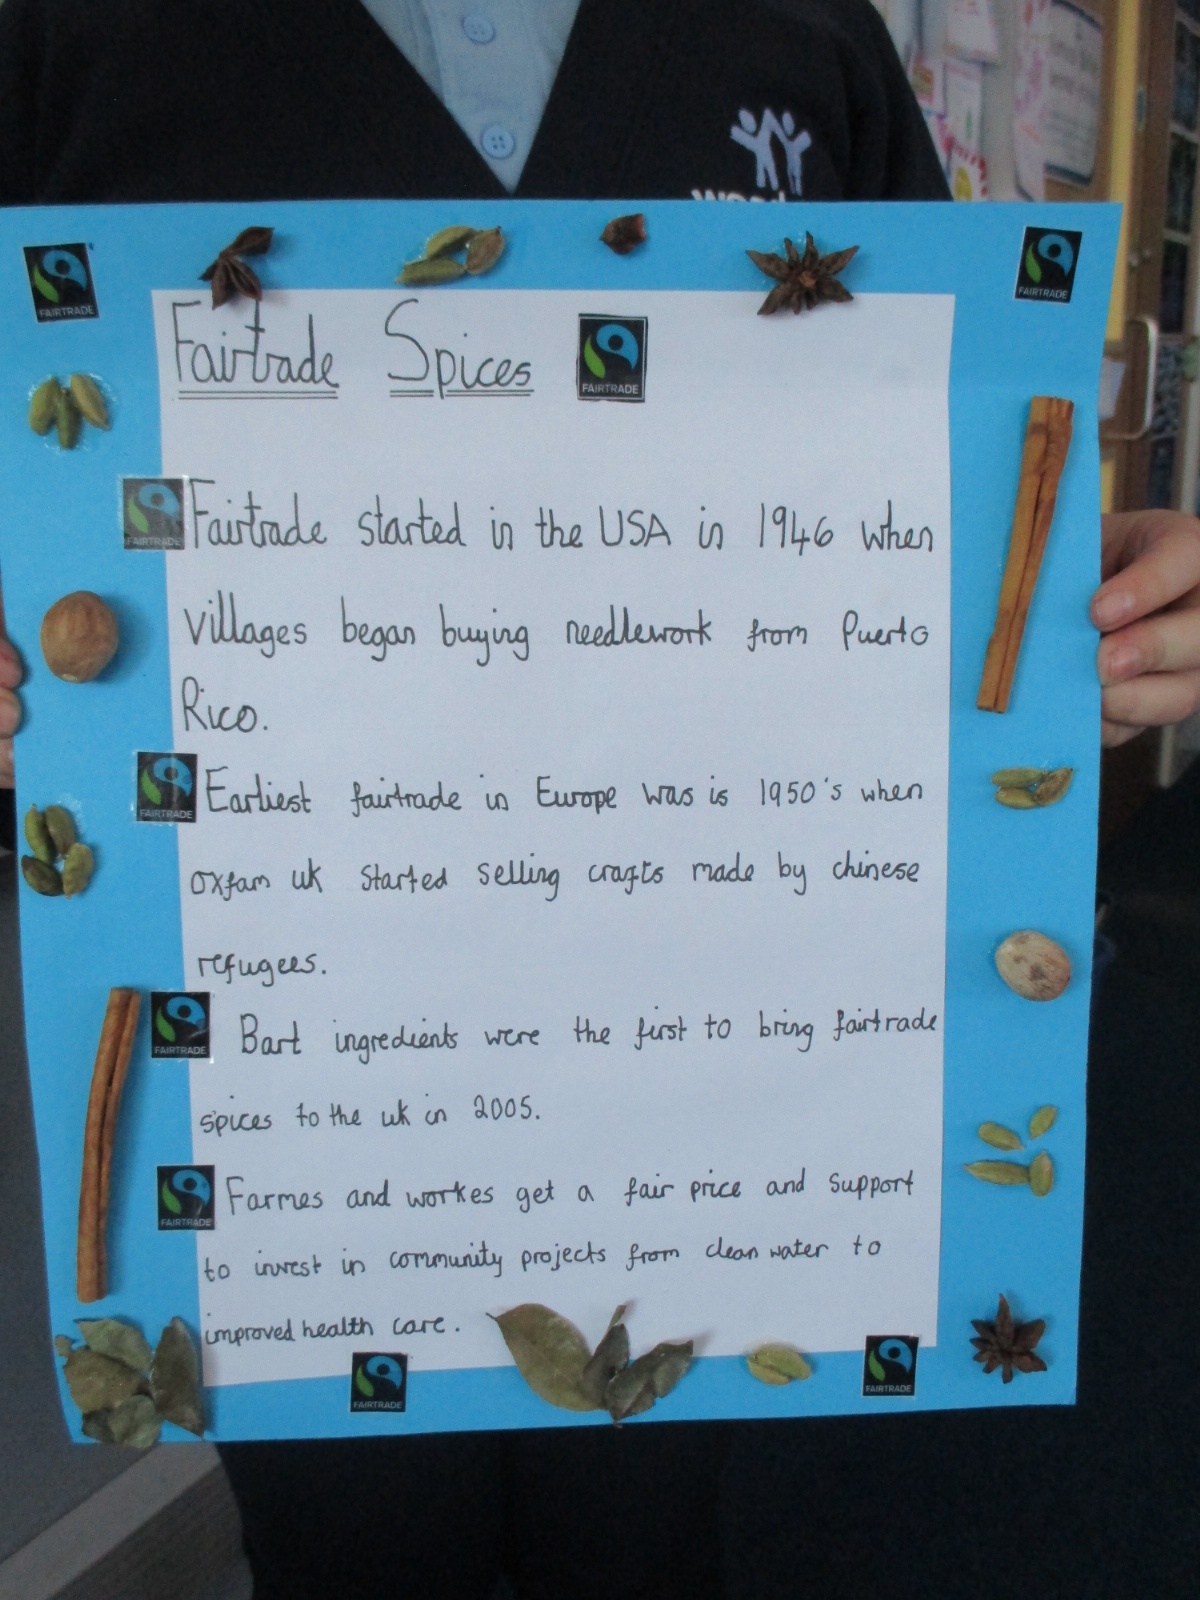 FAIRTRADE
FAIRTRADE
Fairtrade Spices FAIRTRADE
FAIRTRADE Fairtrade started in the USA in 1946 when
villages began buying needlework from Puerto
Rico.
FAIRTRADE Earliest fairtrade in Europe was is 1950's when
oxfam uk started selling crafts made by chinese
refugees.
FAIRTRADE Bart ingredients were the first to bring fairtrade
spices to the uk in 2005.
FAIRTRADE Farmes and workes get a fair price and support
to invest in community projects from clean water to
improved health care.
FAIRTRADE
FAIRTRADE